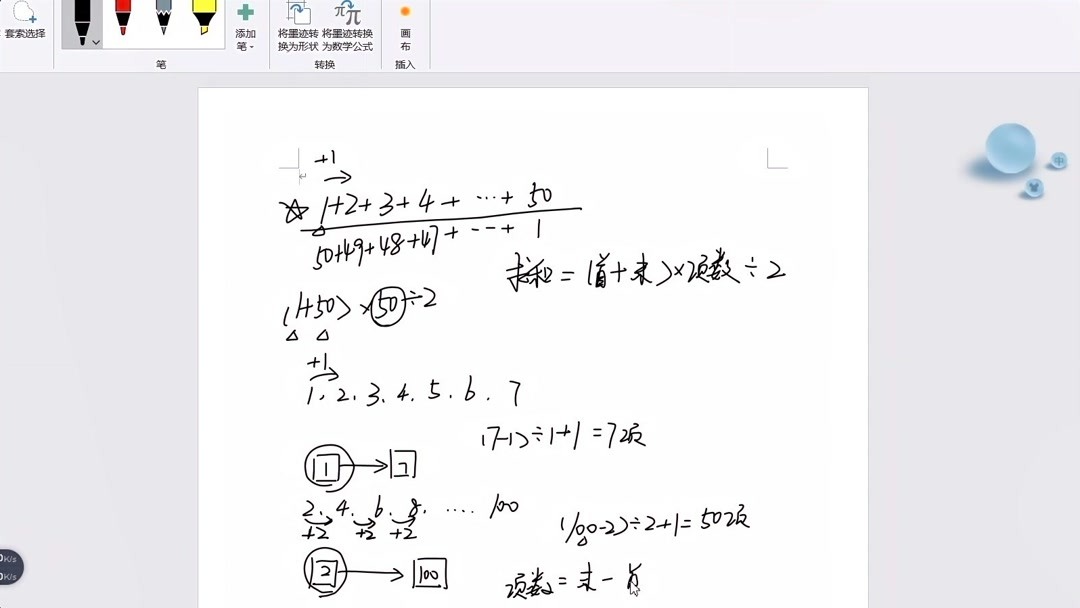 套索选择
添加笔
将墨迹转换为形状
将墨迹转换为数学公式
画布
笔
转换
插入
+1
1+2+3+4+…+50
50+49+48+47+…+1
求和=(首+末)×项数÷2
(1+50)×50÷2
+1
1.2.3.4.5.6.7
(7-1)÷1+1=7项
1 7
2.4.6.8.…100
+2 +2 +2
(100-2)÷2+1=50项
2 100
项数=末-首
K/s
K/s